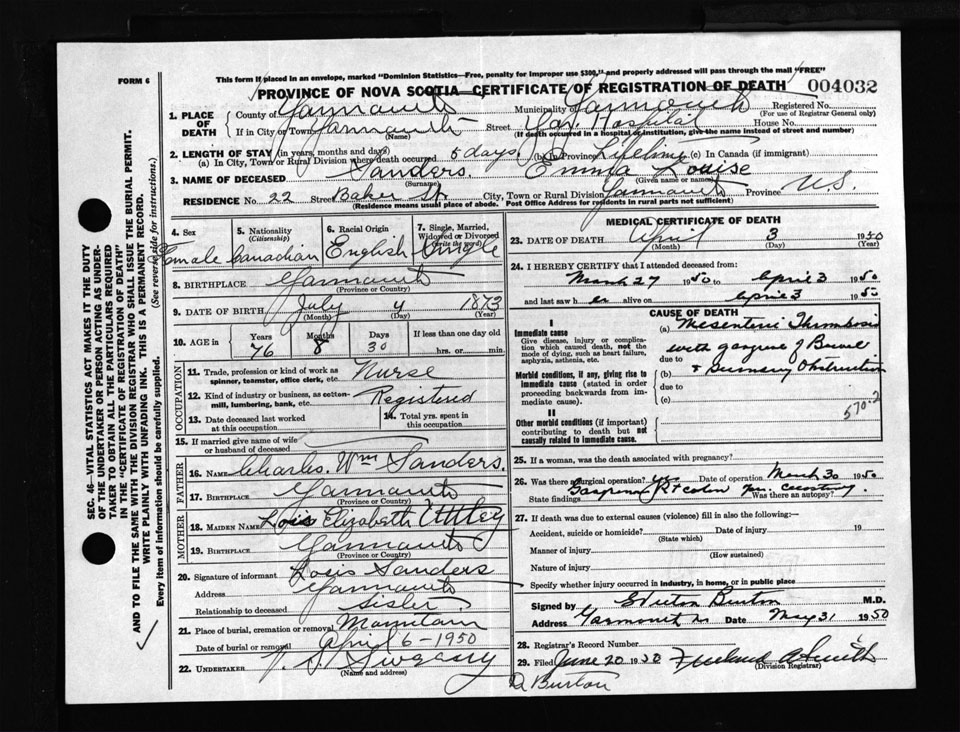 FORM 6
This form if placed in an envelope, marked "Dominion Statistics—Free, penalty for improper use $300," and properly addressed will pass through the mail "FREE"
PROVINCE OF NOVA SCOTIA—CERTIFICATE OF REGISTRATION OF DEATH 004032
1. PLACE OF DEATH
County of Yarmouth Municipality of Yarmouth Registered No.
(For use of Registrar General only)
If in City or Town Yarmouth Street Yar. Hospital House No.
(Name) (If death occurred in a hospital or institution, give the name instead of street and number)
2. LENGTH OF STAY (in years, months and days)
(a) In City, Town or Rural Division where death occurred 5 days (b) in Province Lifetime (c) In Canada (if immigrant)
3. NAME OF DECEASED Sanders. Emma Louise
(Surname) (Given name or names)
RESIDENCE No. 22 Street Baker St City, Town or Rural Division Yarmouth Province N.S.
(Residence means usual place of abode. Post Office Address for residents in rural parts not sufficient)
4. Sex
Female
5. Nationality
(Citizenship)
Canadian
6. Racial Origin
English
7. Single, Married, Widowed or Divorced
(Write the word)
Single
8. BIRTHPLACE Yarmouth
(Province or Country)
9. DATE OF BIRTH July 4 1873
(Month) (Day) (Year)
10. AGE in
Years Months Days If less than one day
76 8 30 hrs. or min.
OCCUPATION
11. Trade, profession or kind of work as spinner, teamster, office clerk, etc. Nurse
12. Kind of industry or business, as cotton-mill, lumbering, bank, etc. Registered
13. Date deceased last worked at this occupation
14. Total yrs. spent in this occupation
15. If married give name of wife or husband of deceased
FATHER
16. NAME Charles. Wm Sanders.
17. BIRTHPLACE Yarmouth
(Province or Country)
MOTHER
18. MAIDEN NAME Lois Elizabeth Uttley
19. BIRTHPLACE Yarmouth
(Province or Country)
20. Signature of informant Lois Sanders
Address Yarmouth
Relationship to deceased Sister
21. Place of burial, cremation or removal Mountain
Date of burial or removal April 6-1950
22. UNDERTAKER V. S. Sweeny
(Name and address)
MEDICAL CERTIFICATE OF DEATH
23. DATE OF DEATH April 3 1950
(Month) (Day) (Year)
24. I HEREBY CERTIFY that I attended deceased from:
March 27 1950 to April 3 1950
and last saw h er alive on April 3 1950
CAUSE OF DEATH
I
Immediate cause
Give disease, injury or complication which caused death, not the mode of dying, such as heart failure, asphyxia, asthenia, etc.
(a) Mesenteric Thrombosis
with gangrene of Bowel
due to
Morbid conditions, if any, giving rise to immediate cause (stated in order proceeding backwards from immediate cause).
(b) Obstruction
due to
(c)
570.2
II
Other morbid conditions (if important) contributing to death but not causally related to immediate cause.
25. If a woman, was the death associated with pregnancy?
26. Was there a surgical operation? yes Date of operation March 30 1950
State findings Gangrene Rt colon Was there an autopsy?
27. If death was due to external causes (violence) fill in also the following:—
Accident, suicide or homicide? Date of injury 19
(State which)
Manner of injury
(How sustained)
Nature of injury
Specify whether injury occurred in industry, in home, or in public place
Signed by Burton M.D.
Address Yarmouth NS Date May 31 1950
28. Registrar's Record Number
29. Filed June 20 1950 Freeland A Smith
(Division Registrar)
D. Burton
SEC. 46—VITAL STATISTICS ACT MAKES IT THE DUTY OF THE UNDERTAKER OR PERSON ACTING AS UNDERTAKER TO OBTAIN ALL THE PARTICULARS REQUIRED IN THE "CERTIFICATE OF REGISTRATION OF DEATH" AND TO FILE THE SAME WITH THE DIVISION REGISTRAR WHO SHALL ISSUE THE BURIAL PERMIT.
WRITE PLAINLY WITH UNFADING INK. THIS IS A PERMANENT RECORD.
Every item of information should be carefully supplied. (See reverse side for instructions.)